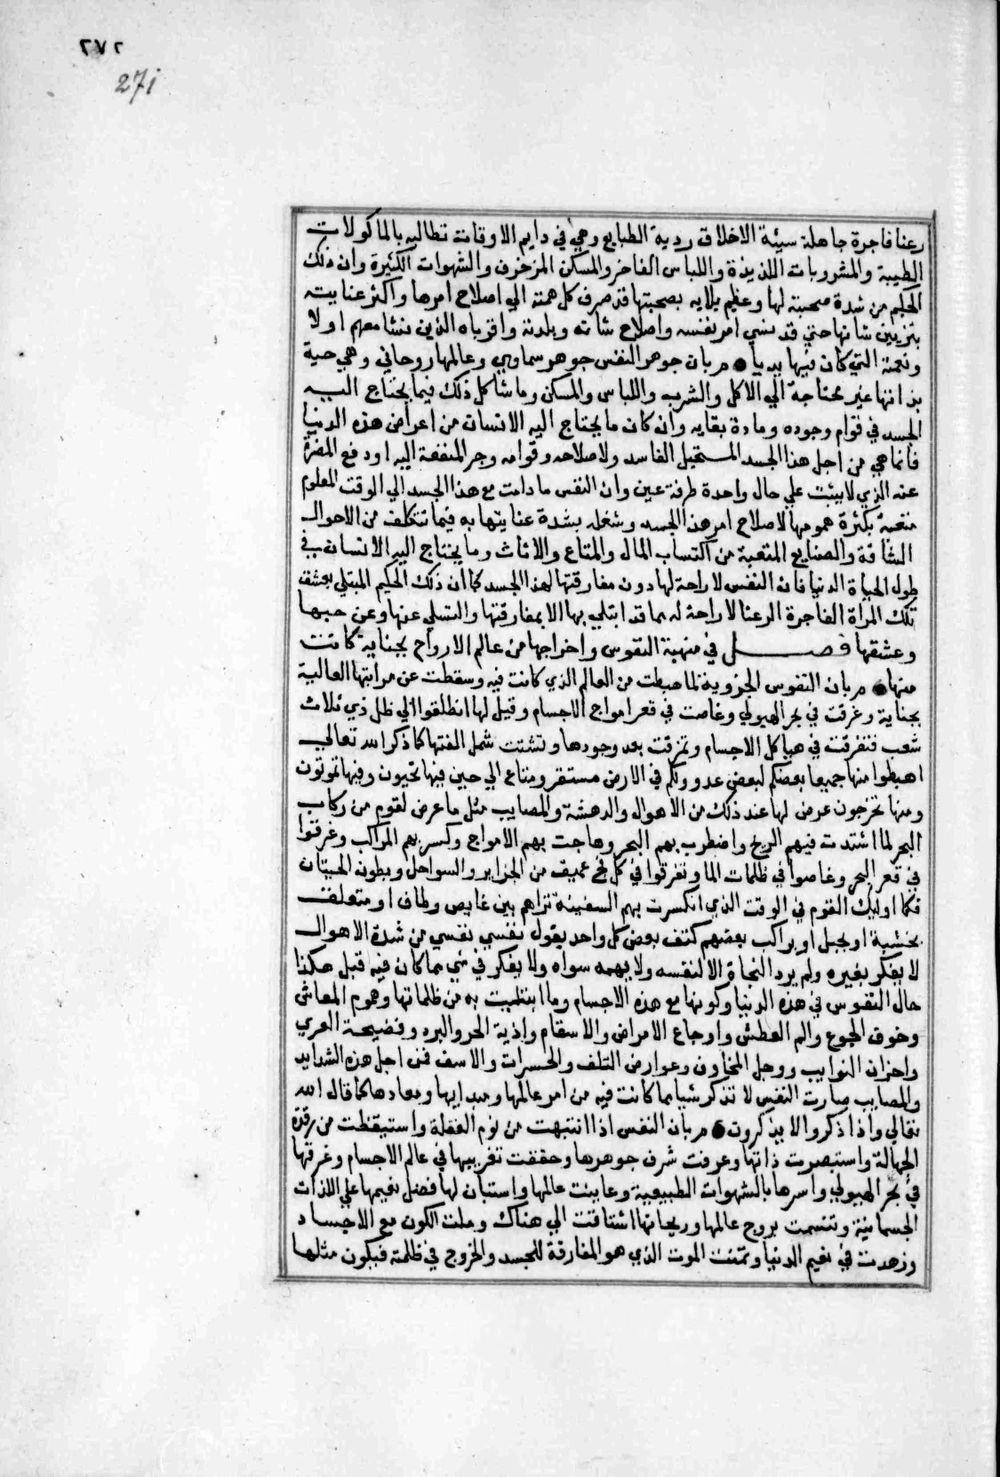 ٢٧٢
271
رعنا فاجرة جاهلة سيئة الاخلاق ردية الطبايع وهي في دايم الاوقات تطالبه بالماكولات
الطيبة والمشروبات اللذيذة واللباس الفاخر والمسكن المزخرف والشهوات الكثيرة وان ذلك
الحكيم من شدة محبته لها وعظيم بلايه بصحبتها قد صرف كل همته الي اصلاح امرها واكثر عنايته
بتزيين شانها حتي قد نسي امر نفسه واصلاح شانه وبلدته واقرباه الذين نشا معهم اولا
ونعمته التي كان فيها بديا مر بان جوهر النفس جوهر سماوي وعالمها روحاني وهي حية
بذاتها غير محتاجة الي الاكل والشرب واللباس والمسكن وما شاكل ذلك فيما يحتاج اليه
الجسد في قوام وجوده ومادة بقايه وان كان ما يحتاج اليه الانسان من اعراض هذه الدنيا
فانما هي من اجل هذا الجسد المستحيل الفاسد ولاصلاحه وقوامه وجر المنفعة اليه او دفع المضرة
عنه الذي لا يثبت علي حال واحدة طرفة عين وان النفس ما دامت مع هذا الجسد الي الوقت المعلوم
متعبة بكثرة همومها لاصلاح امر هذا الجسد وشغله بشدة عنايتها به فيما تتكلف من الاحوال
الشاقة والصنايع المتعبة من اكتساب المال والمتاع والاثاث وما يحتاج اليه الانسان في
طول الحياة الدنيا فان النفس لا راحة لها دون مفارقتها لهذا الجسد كما ان ذلك الحكيم المبتلي بعشق
تلك المراة الفاجرة الرعنا لا راحة له مما قد ابتلي بها الا بمفارقتها والتسلي عنها وعن حبها
وعشقها فصل في منهبة النفوس واخراجها من عالم الارواح بجناية كانت
منها مر بان النفوس الجزوية لما هبطت من العالم الذي كانت فيه وسقطت عن مراتبها العالية
بجناية وغرقت في بحر الهيولي وغاصت في قعر امواج الاجسام وقيل لها انطلقوا الي ظل ذي ثلاث
شعب فتفرقت في هياكل الاجسام وتمزقت بعد وجودها وتشتت شمل الفتها كما ذكر الله تعالي
اهبطوا منها جميعا بعضكم لبعض عدو ولكم في الارض مستقر ومتاع الي حين فيها تحيون وفيها تموتون
ومنها تخرجون عرض لها عند ذلك من الاهوال والدهشة والمصايب مثل ما عرض لقوم من ركاب
البحر لما اشتدت فيهم الريح واضطرب بهم البحر وهاجت بهم الامواج وكسر بهم المراكب وغرقوا
في قعر البحر وغاصوا في ظلمات الما وتفرقوا في كل فج عميق من الجزاير والسواحل وبطون الحيتان
فكما اوليك القوم في الوقت الذي انكسرت بهم السفينة تراهم بين غايص وطاف او متعلق
بخشبة او بحبل او يراكب بعضهم كتف بعض كل واحد يقول نفسي نفسي من شدة الاهوال
لا يفكر بغيره ولم يرد النجاة الا لنفسه ولا يهمه سواه ولا يفكر في شي مما كان فيه قبل هكذا
حال النفوس في هذه الدنيا وكونها مع هذه الاجسام وما ابتليت به من ظلماتها وهموم المعاش
وخوف الجوع والم العطش واوجاع الامراض والاسقام واذية الحر والبرد وفضيحة العري
واحزان النوايب ووجل المخاوف وعوارض التلف والحسرات والاسف فمن اجل هذه الشدايد
والمصايب صارت النفس لا تذكر شيا مما كانت فيه من امر عالمها ومبدايها ومعادها كما قال الله
تعالي واذا ذكروا لا يذكرون مر بان النفس اذا انتبهت من نوم الغفلة واستيقظت من رقدة
الجهالة واستبصرت ذاتها وعرفت شرف جوهرها وحققت تغريبها في عالم الاجسام وغرقها
في بحر الهيولي واسرها بالشهوات الطبيعية وعاينت عالمها واستبان لها فضل نعيمها علي اللذات
الجسمانية وتنسمت بروح عالمها وريحانها اشتاقت الي هناك وملت الكون مع الاجساد
وزهدت في نعيم الدنيا وتمنت الموت الذي هو المفارقة للجسد والخروج في ظلمته فيكون مثلها